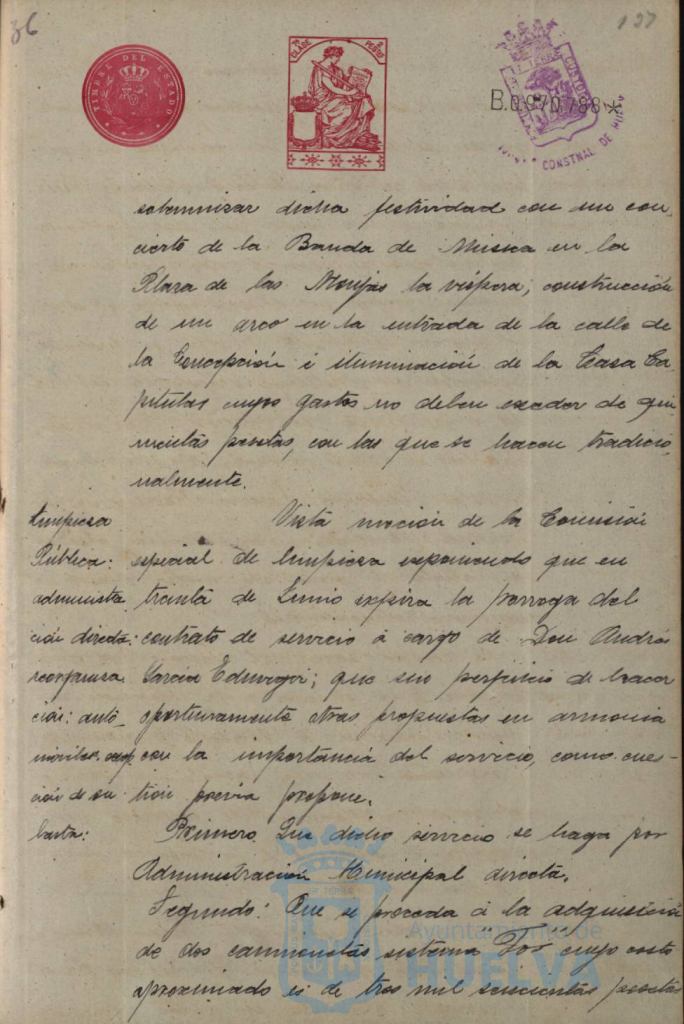 36
137
TIMBRE DEL ESTADO
7ª CLASE
2 PESETAS
B.0.970.788*
CUSTODIA
CONSTNAL DE HUELVA
solemnizar dicha festividad con un con
cierto de la Banda de Música en la
Plaza de las Monjas la víspera; construcción
de un arco en la entrada de la calle de
la Concepción é iluminación de la Casa Ca
pitular cuyos gastos no deben exceder de qui
nientas pesetas, con las que se hacen tradicio
nalmente.
Limpieza
Pública:
administra
ción directa:
auto
móviles
ción de su
basta:
Vista moción de la Comisión
especial de limpieza exponiendo que en
treinta de Junio expira la prorroga del
contrato de servicio á cargo de Don Andrés
García ; que sin perjuicio de hacer
oportunamente otras propuestas en armonía
con la importancia del servicio, como cues-
tión previa propone.
Primero. Que dicho servicio se haga por
Administración Municipal directa.
Segundo: Que se proceda á la adquisición
de dos camionetas sistema For cuyo costo
aproximado es de tres mil seiscientas pesetas
Ayuntamiento de
HUELVA